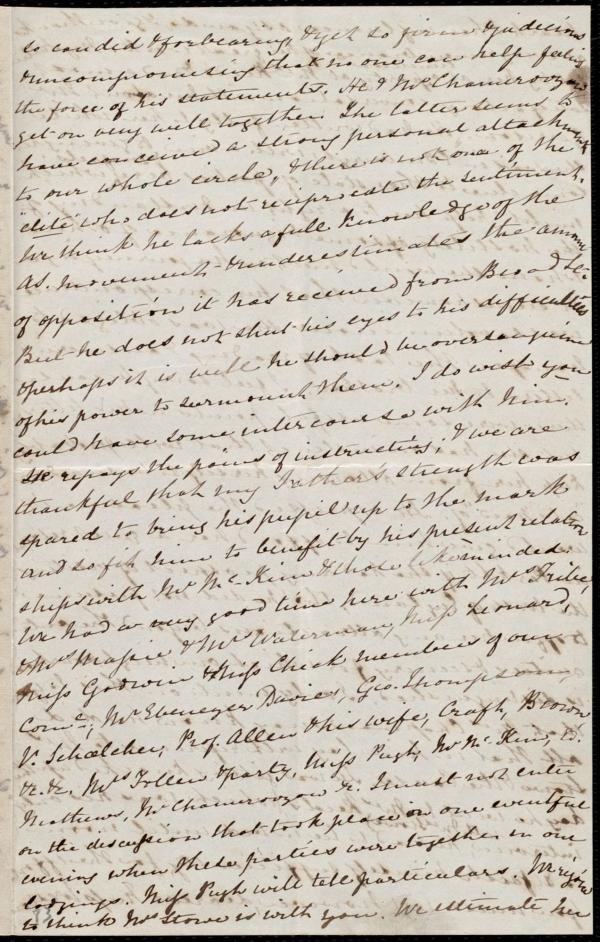 so candid & forbearing, & yet so firm & judicious
& uncompromising that no one can help feeling
the force of his statements. He & Mr Chamerovzow
get on very well together. The latter seems to
have conceived a strong personal attachment
to our whole circle, & there is not one of the
"elite" who does not reciprocate the sentiment.
We think he lacks a full knowledge of the
A.S. movement & underestimates the amount
of opposition it has received from Broad St.
But he does not shut his eyes to his difficulties
& perhaps it is well he should be oversanguine
of his power to surmount them. I do wish you
could have some intercourse with him.
He repays the pains of instructing, & we are
thankful that my Father's strength was
spared to bring his pupil up to the mark
and so fit him to benefit by his present relation
ships with Mr Mc. Kim & those likeminded.
We had a very good time here with Mrs Tribe,
& Mrs Massie & Mrs Waterman, Miss Leonard,
Miss Godwin & Miss Chick members of our
Comee, Mr Ebenezer Davies, Geo. Thompson,
V. Schœlcher, Prof. Allen & his wife, Craft, Brown
&c. &c. Mrs Follen & party, Miss Pugh, Mr Mc. Kim, E.
Mathews, Mr Chamerovzow &c. I must not enter
on the discussion that took place on one eventful
evening when these parties were together in our
lodgings. Miss Pugh will tell particulars. We rejoice
to think Mrs Stowe is with you. We estimate her